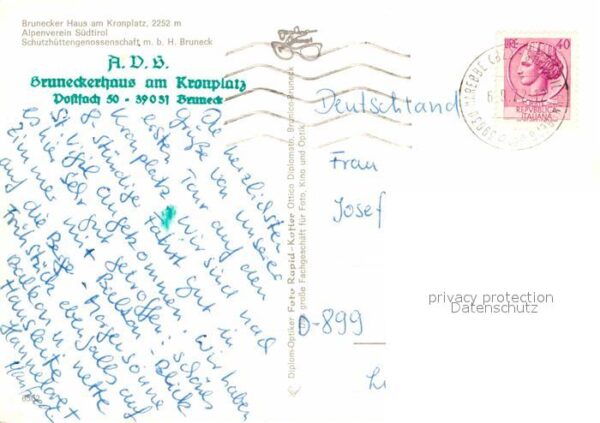 Brunecker Haus am Kronplatz, 2252 m
Alpenverein Südtirol
Schutzhüttengenossenschaft m. b. H. Bruneck
A.V.S.
Bruneckerhaus am Kronplatz
Postfach 50 - 39031 Bruneck
Die herzlichsten
Grüße von unserer
ersten Tour auf den
Kronplatz. Wir sind nach
ruhiger Fahrt gut in
St. Vigil angekommen. Wir haben
es hier sehr gut getroffen: schönes
Zimmer mit Balkon, Blick
auf die Berge, Morgensonne
Frühstück ebenfalls auf
Balkon u. nette
Hausleute
Hannelore
Manfred
6562
Diplom-Optiker Foto Rapid-Kofler Ottico Diplomato, Brunico-Bruneck
große Fachgeschäft für Foto, Kino und Optik
LIRE 40
REPUBBLICA
ITALIANA
Deutschland
Frau
Josef
D-899
Li
privacy protection
Datenschutz